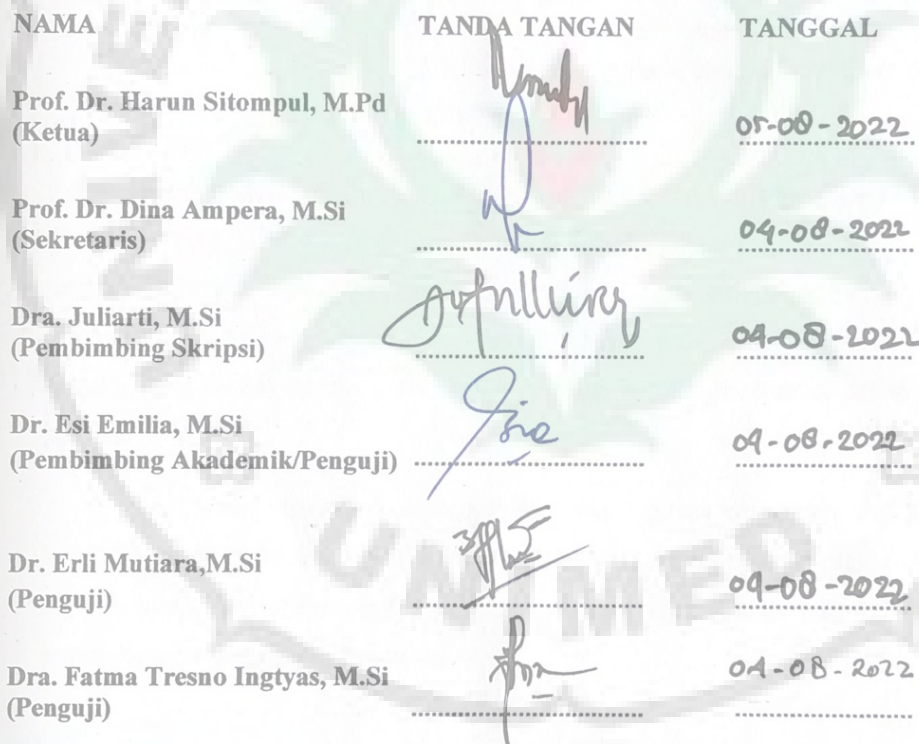 NAMA TANDA TANGAN TANGGAL
Prof. Dr. Harun Sitompul, M.Pd
(Ketua) 05-08-2022
Prof. Dr. Dina Ampera, M.Si
(Sekretaris) 04-08-2022
Dra. Juliarti, M.Si
(Pembimbing Skripsi) 04-08-2022
Dr. Esi Emilia, M.Si
(Pembimbing Akademik/Penguji) 04-08-2022
Dr. Erli Mutiara,M.Si
(Penguji) 04-08-2022
Dra. Fatma Tresno Ingtyas, M.Si 04-08-2022
(Penguji)
UNIMED